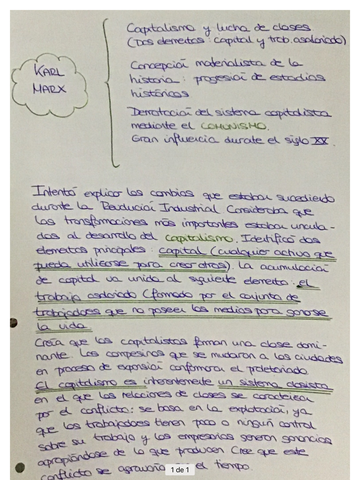 Capitalismo y lucha de clases
(Dos elementos: capital y trab. asalariado)
KARL
MARX
Concepción materialista de la
historia: progresión de estadios
históricos
Derrotación del sistema capitalista
mediante el COMUNISMO.
Gran influencia durante el siglo XX.
Intentó explicar los cambios que estaban sucediendo
durante la Revolución Industrial. Consideraba que
las transformaciones más importantes estaban vincula-
das al desarrollo del capitalismo. Identificó dos
elementos principales: capital (cualquier activo que
pueda utilizarse para crear otros). La acumulación
de capital va unida al siguiente elemento: el
trabajo asalariado (formado por el conjunto de
trabajadores que no poseen los medios para ganarse
la vida.
Creía que los capitalistas forman una clase domi-
nante. Los campesinos que se mudaron a las ciudades
en proceso de expansión conformaron el proletariado.
El capitalismo es inherentemente un sistema clasista
en el que las relaciones de clases se caracterizan
por el conflicto: se basa en la explotación, ya
que los trabajadores tienen poco o ningún control
sobre su trabajo y los empresarios generan ganancias
apropiándose de lo que producen. Cree que este
conflicto se agravaría el tiempo.
1 de 1